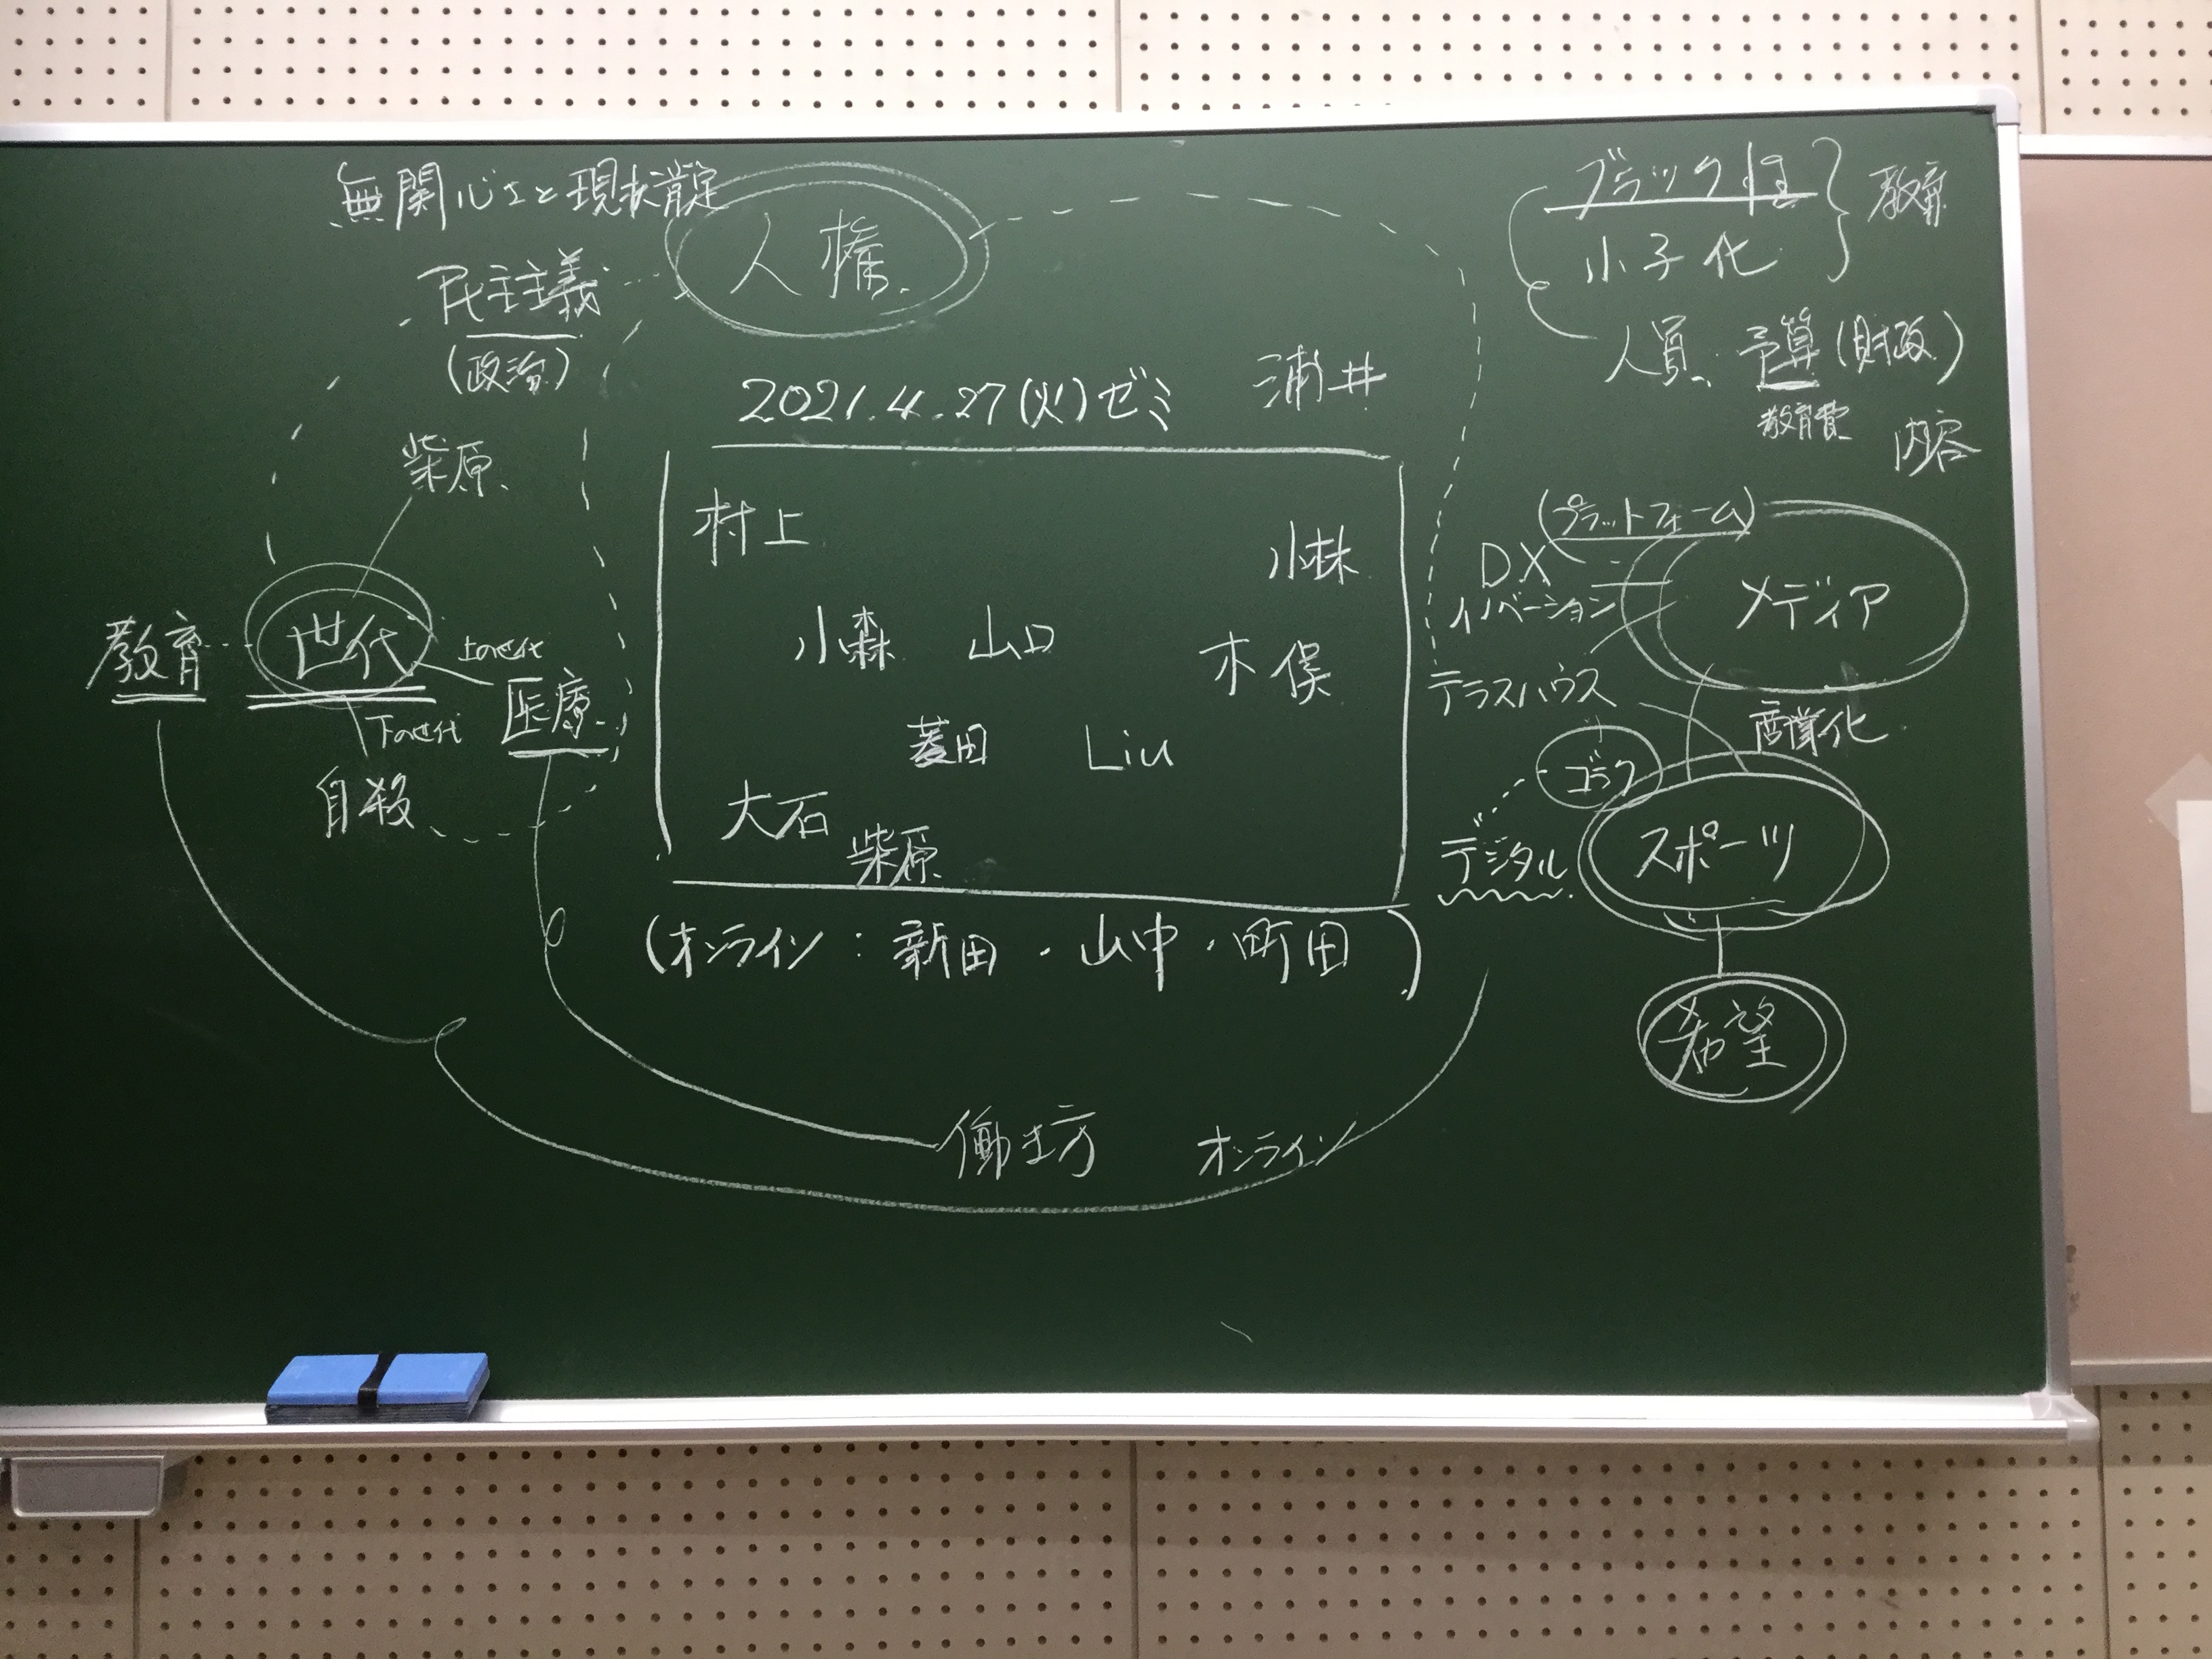 無関心さと現状肯定
人権
民主主義
(政治)
ブラック性
少子化
教育
人員、予算(財政)
教育費
内容
2021.4.27(火)ゼミ 浦井
柴原
村上
小林
小森 山口
木俣
菱田 Liu
大石
柴原
(オンライン:新田・山中・町田)
教育
世代
上の世代
医療
下の世代
自殺
(プラットフォーム)
DX
イノベーション
メディア
テラスハウス
商業化
ゴラク
デジタル
スポーツ
希望
働き方 オンライン